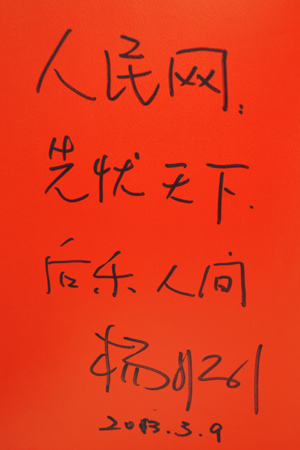 人民网:
先忧天下.
后乐人间
杨
2013.3.9